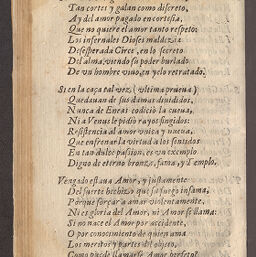 Tan cortes y galan como discreto,
Ay del amor pagado en cortesia,
Que no quiere el amor tanto respeto:
Los infernales Dioses maldizia
Desesperada Circe, en lo secreto
Del alma, viendo su poder burlado
De vn hombre viuo, en yelo retratado.
Si en la caça tal vez (vltima prueua)
Quedauan de sus damas diuididos,
Nunca de Enrai codició la cueua,
Ni a Venus le pidio rayos fingidos:
Resistencia al amor vnica y nueua,
Que enfrenar la virtud a los sentidos
En tan dulce passion, es vn exemplo
Digno de eterno bronze, fama, y Templo.
Vengado estaua Amor, y justamente
Del fuerte hechizo que su fuego infama,
Porque forçar a amar violentamente,
Ni es gloria del Amor, ni Amor se llama:
Si no nace el Amor por accidente,
O por conocimiento de quien ama
Los meritos y partes del objeto,
Como puede llamarse Amor perfeto?